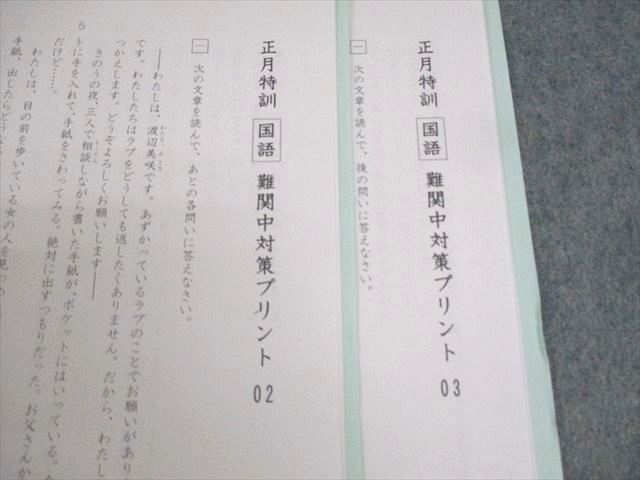 正月特訓 国語 難関中対策プリント 03
一 次の文章を読んで、後の問いに答えなさい。
正月特訓 国語 難関中対策プリント 02
一 次の文章を読んで、あとの各問いに答えなさい。
――わたしは、渡辺美咲です。あずかっているラブのことでお願いがあり
です。わたしたちはラブをどうしても返したくありません。だから、わたし
つかえします。どうぞよろしくお願いします――
きのうの夜、三人で相談しながら書いた手紙が、ポケットにはいっている。
トに手を入れて、手紙をさわってみる。絶対に出すつもりだった。お父さんか
だけど……。
5
わたしは、目の前を歩いている女の人を見つめ
手紙、出したらどう